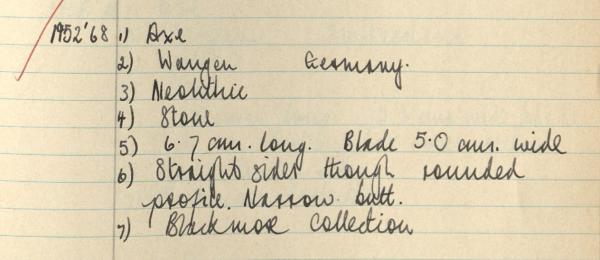 1952'68 1) Axe
2) Wangen Germany.
3) Neolithic
4) Stone
5) 6.7 cms. long. Blade 5.0 cms. wide
6) Straight sides though rounded
profile. Narrow butt.
7) Blackmore Collection